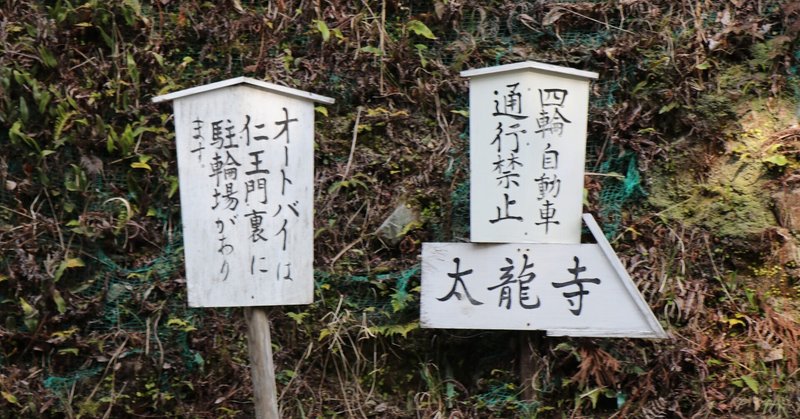 オートバイは
仁王門裏に
駐輪場があり
ます。
四輪自動車
通行禁止
太龍寺